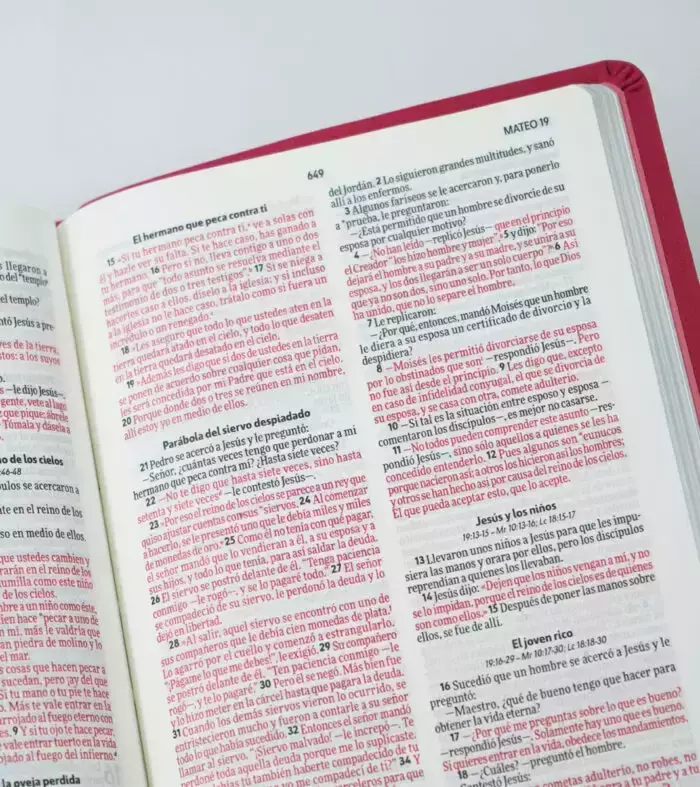 s llegaron a
o del "templo
el templo?
ntó Jesús a pre-
res de la tierra,
stos: a los suyos
—le dijo Jesús—.
gente, vete al lago
que pique; ábrele
Tómala y dásela a
o de los cielos
46-48
pulos se acercaron a
nte en el reino de los
so en medio de ellos.
que ustedes cambien y
trarán en el reino de los
humilla como este niño
de los cielos.
mbre a un niño como éste,
en hace "pecar a uno de
n mí, más le valdría que
an piedra de molino y lo
el mar.
s cosas que hacen pecar a
sucedan, pero ¡ay del que
Si tu mano o tu pie te hace
o. Más te vale entrar en la
rrojado al fuego eterno con
es. 9 Y si tu ojo te hace pecar,
e vale entrar tuerto en la vida
ojado al fuego del infierno.
la oveja perdida
649
MATEO 19
El hermano que peca contra ti
15 »Si tu hermano peca contra ti, ve a solas con
él y hazle ver su falta. Si te hace caso, has ganado a
tu hermano. 16 Pero si no, lleva contigo a uno o dos
más, para que "todo asunto se resuelva mediante el
testimonio de dos o tres testigos". 17 Si se niega a
hacerles caso a ellos, díselo a la iglesia; y si incluso
a la iglesia no le hace caso, trátalo como si fuera un
incrédulo o un renegado.
18 »Les aseguro que todo lo que ustedes aten en la
tierra quedará atado en el cielo, y todo lo que desaten
en la tierra quedará desatado en el cielo.
19 »Además les digo que si dos de ustedes en la tierra
se ponen de acuerdo sobre cualquier cosa que pidan,
les será concedida por mi Padre que está en el cielo.
20 Porque donde dos o tres se reúnen en mi nombre,
allí estoy yo en medio de ellos.
Parábola del siervo despiadado
21 Pedro se acercó a Jesús y le preguntó:
—Señor, ¿cuántas veces tengo que perdonar a mi
hermano que peca contra mí? ¿Hasta siete veces?
22 —No te digo que hasta siete veces, sino hasta
setenta y siete veces —le contestó Jesús—.
23 »Por eso el reino de los cielos se parece a un rey que
quiso ajustar cuentas con sus "siervos. 24 Al comenzar
a hacerlo, se le presentó uno que le debía miles y miles
de monedas de oro. 25 Como él no tenía con qué pagar,
el señor mandó que lo vendieran a él, a su esposa y a
sus hijos, y todo lo que tenía, para así saldar la deuda.
26 El siervo se postró delante de él. "Tenga paciencia
conmigo —le rogó—, y se lo pagaré todo." 27 El señor
se compadeció de su siervo, le perdonó la deuda y lo
dejó en libertad.
28 »Al salir, aquel siervo se encontró con uno de
sus compañeros que le debía cien monedas de plata.
Lo agarró por el cuello y comenzó a estrangularlo.
"¡Págame lo que me debes!", le exigió. 29 Su compañero
se postró delante de él. "Ten paciencia conmigo —le
rogó—, y te lo pagaré." 30 Pero él se negó. Más bien fue
y lo hizo meter en la cárcel hasta que pagara la deuda.
31 Cuando los demás siervos vieron lo ocurrido, se
entristecieron mucho y fueron a contarle a su señor
todo lo que había sucedido. 32 Entonces el señor mandó
llamar al siervo. "¡Siervo malvado! —le increpó—. Te
perdoné toda aquella deuda porque me lo suplicaste.
bías tú también haberte compadecido de tu
yo me compadecí de ti?" 34 Y
arceleros para que
del Jordán. 2 Lo siguieron grandes multitudes, y sanó
allí a los enfermos.
3 Algunos fariseos se le acercaron y, para ponerlo
a "prueba, le preguntaron:
—¿Está permitido que un hombre se divorcie de su
esposa por cualquier motivo?
4 —¿No han leído —replicó Jesús— que en el principio
el Creador "los hizo hombre y mujer", 5 y dijo: "Por eso
dejará el hombre a su padre y a su madre, y se unirá a su
esposa, y los dos llegarán a ser un solo cuerpo"? 6 Así
que ya no son dos, sino uno solo. Por tanto, lo que Dios
ha unido, que no lo separe el hombre.
7 Le replicaron:
—¿Por qué, entonces, mandó Moisés que un hombre
le diera a su esposa un certificado de divorcio y la
despidiera?
8 —Moisés les permitió divorciarse de su esposa
por lo obstinados que son —respondió Jesús—. Pero
no fue así desde el principio. 9 Les digo que, excepto
en caso de infidelidad conyugal, el que se divorcia de
su esposa, y se casa con otra, comete adulterio.
10 —Si tal es la situación entre esposo y esposa —
comentaron los discípulos—, es mejor no casarse.
11 —No todos pueden comprender este asunto —res-
pondió Jesús—, sino sólo aquellos a quienes se les ha
concedido entenderlo. 12 Pues algunos son "eunucos
porque nacieron así; a otros los hicieron así los hombres;
y otros se han hecho así por causa del reino de los cielos.
El que pueda aceptar esto, que lo acepte.
Jesús y los niños
19:13-15 – Mr 10:13-16; Lc 18:15-17
13 Llevaron unos niños a Jesús para que les impu-
siera las manos y orara por ellos, pero los discípulos
reprendían a quienes los llevaban.
14 Jesús dijo: «Dejen que los niños vengan a mí, y no
se lo impidan, porque el reino de los cielos es de quienes
son como ellos.» 15 Después de poner las manos sobre
ellos, se fue de allí.
El joven rico
19:16-29 – Mr 10:17-30; Lc 18:18-30
16 Sucedió que un hombre se acercó a Jesús y le
preguntó:
—Maestro, ¿qué de bueno tengo que hacer para
obtener la vida eterna?
17 —¿Por qué me preguntas sobre lo que es bueno?
—respondió Jesús—. Solamente hay uno que es bueno.
Si quieres entrar en la vida, obedece los mandamientos.
18 —¿Cuáles? —preguntó el hombre.
Contestó Jesús:
cometas adulterio, no robes, no
a tu padre y a tu